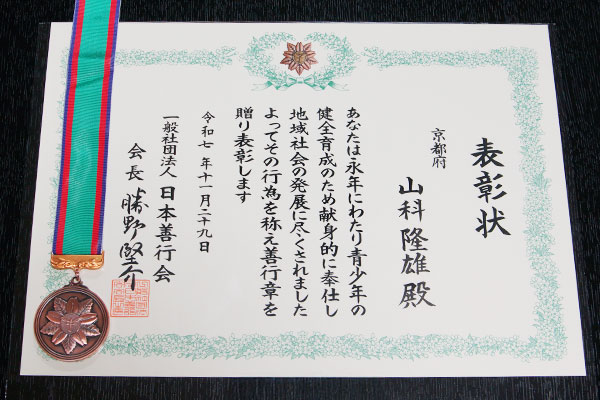 表彰状
京都府
山科隆雄殿
あなたは永年にわたり青少年の
健全育成のため献身的に奉仕し
地域社会の発展に尽くされました
よってその行為を称え善行章を
贈り表彰します
令和七年十一月二十九日
一般社団法人 日本善行会
会長 勝野堅介